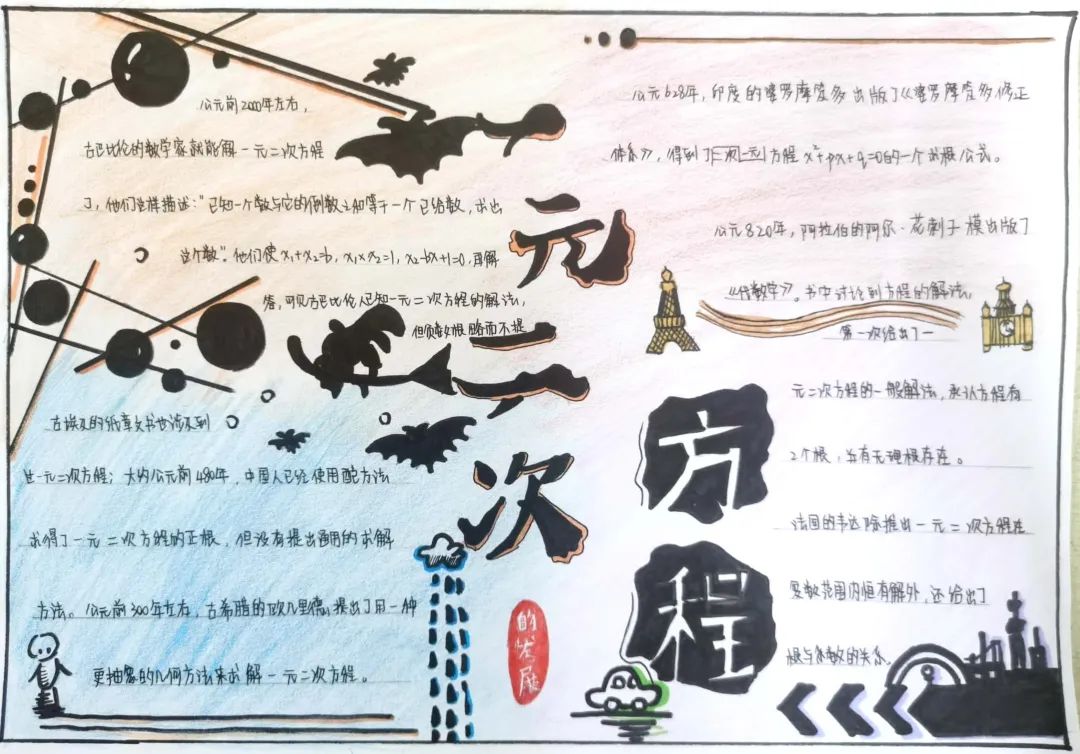 公元前2000年左右，
古巴比伦的数学家就能解一元二次方程
了，他们这样描述：“已知一个数与它的倒数之和等于一个已给数，求出
这个数”。他们使x₁+x₂=b，x₁×x₂=1，x₂-bx+1=0，再解
答，可见古巴比伦人已知一元二次方程的解法，
但负数根略而不提
古埃及的纸草文书也涉及到
过一元二次方程；大约公元前480年，中国人已经使用配方法
求得了一元二次方程的正根，但没有提出通用的求解
方法。公元前300年左右，古希腊的欧几里德提出了用一种
更抽象的几何方法来求解一元二次方程。
元
二
次
方
程
的发展
公元628年，印度的婆罗摩笈多出版了《婆罗摩笈多修正
体系》，得到了二次一元方程x²+px+q=0的一个求根公式。
公元820年，阿拉伯的阿尔·花剌子模出版了
《代数学》。书中讨论到方程的解法，
第一次给出了一
元二次方程的一般解法，承认方程有
2个根，并有无理根存在。
法国的韦达除推出一元二次方程在
复数范围内恒有解外，还给出了
根与系数的关系。